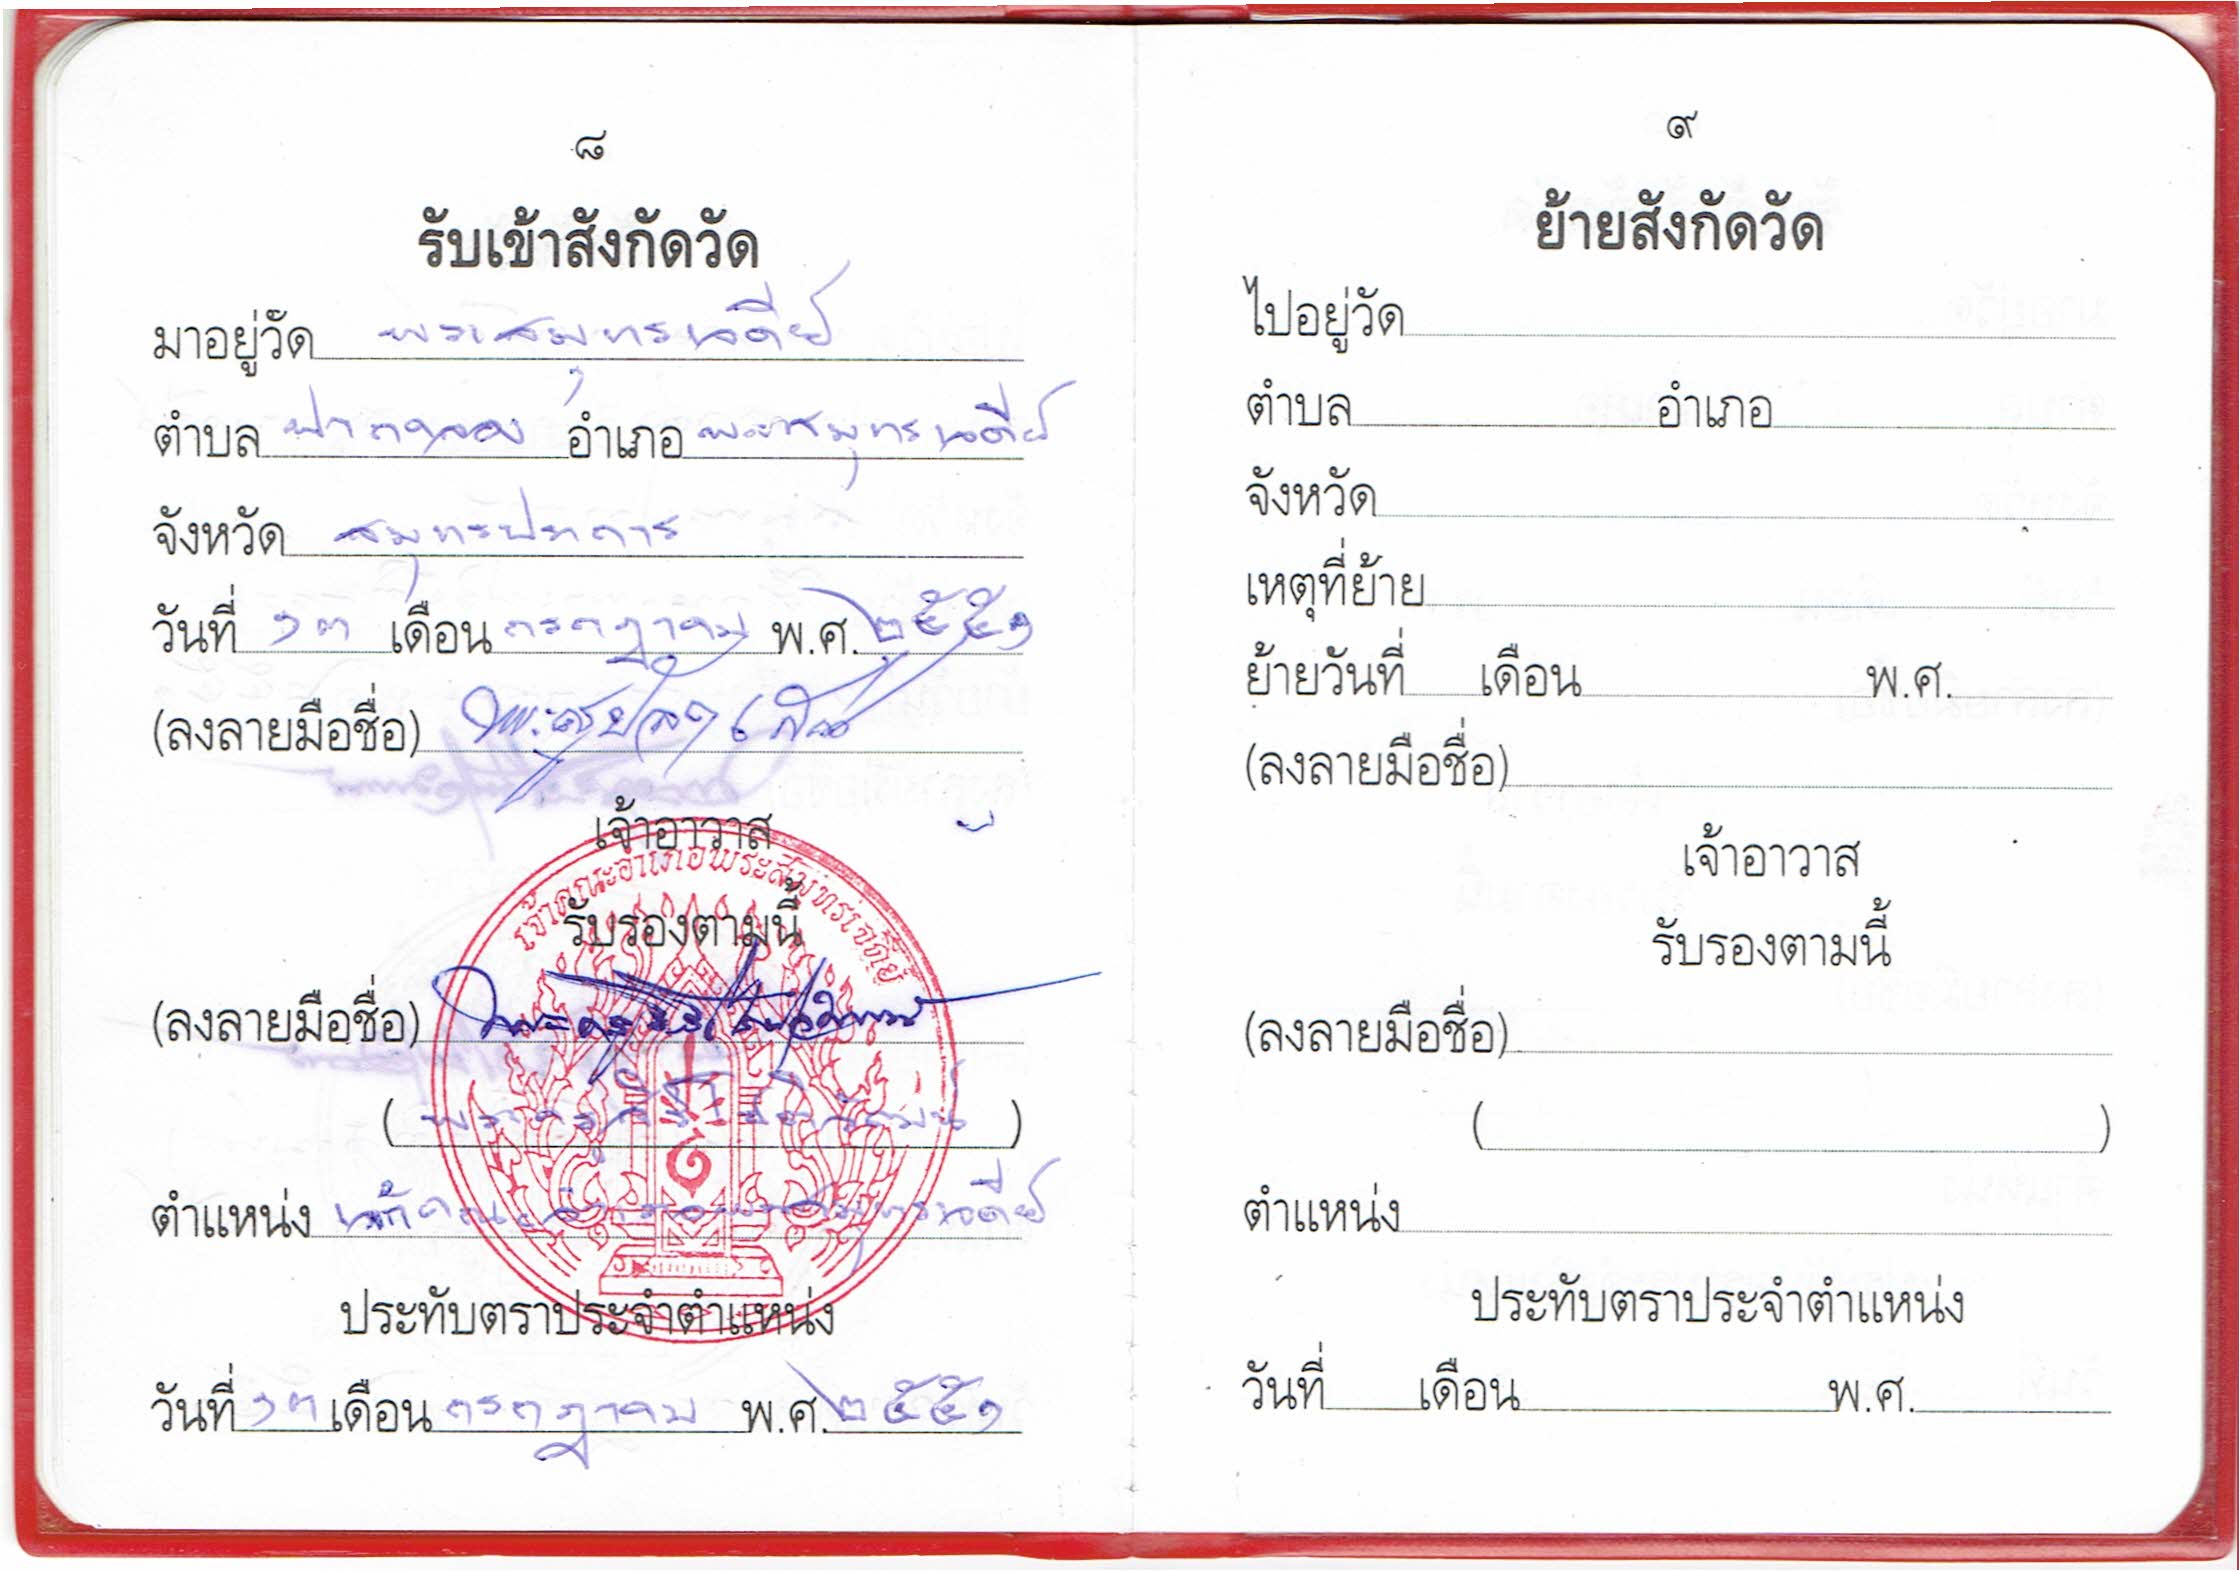 ๘
รับเข้าสังกัดวัด
มาอยู่วัด พระสมุทรเจดีย์
ตำบล ปากคลอง อำเภอ พระสมุทรเจดีย์
จังหวัด สมุทรปราการ
วันที่ ๑๓ เดือน กรกฎาคม พ.ศ. ๒๕๕๑
(ลงลายมือชื่อ)
เจ้าอาวาส
เจ้าคณะอำเภอพระสมุทรเจดีย์
รับรองตามนี้
(ลงลายมือชื่อ)
( พระครู )
ตำแหน่ง เจ้าคณะอำเภอพระสมุทรเจดีย์
ประทับตราประจำตำแหน่ง
วันที่ ๑๓ เดือน กรกฎาคม พ.ศ. ๒๕๕๑
๙
ย้ายสังกัดวัด
ไปอยู่วัด
ตำบล อำเภอ
จังหวัด
เหตุที่ย้าย
ย้ายวันที่ เดือน พ.ศ.
(ลงลายมือชื่อ)
เจ้าอาวาส
รับรองตามนี้
(ลงลายมือชื่อ)
( )
ตำแหน่ง
ประทับตราประจำตำแหน่ง
วันที่ เดือน พ.ศ.